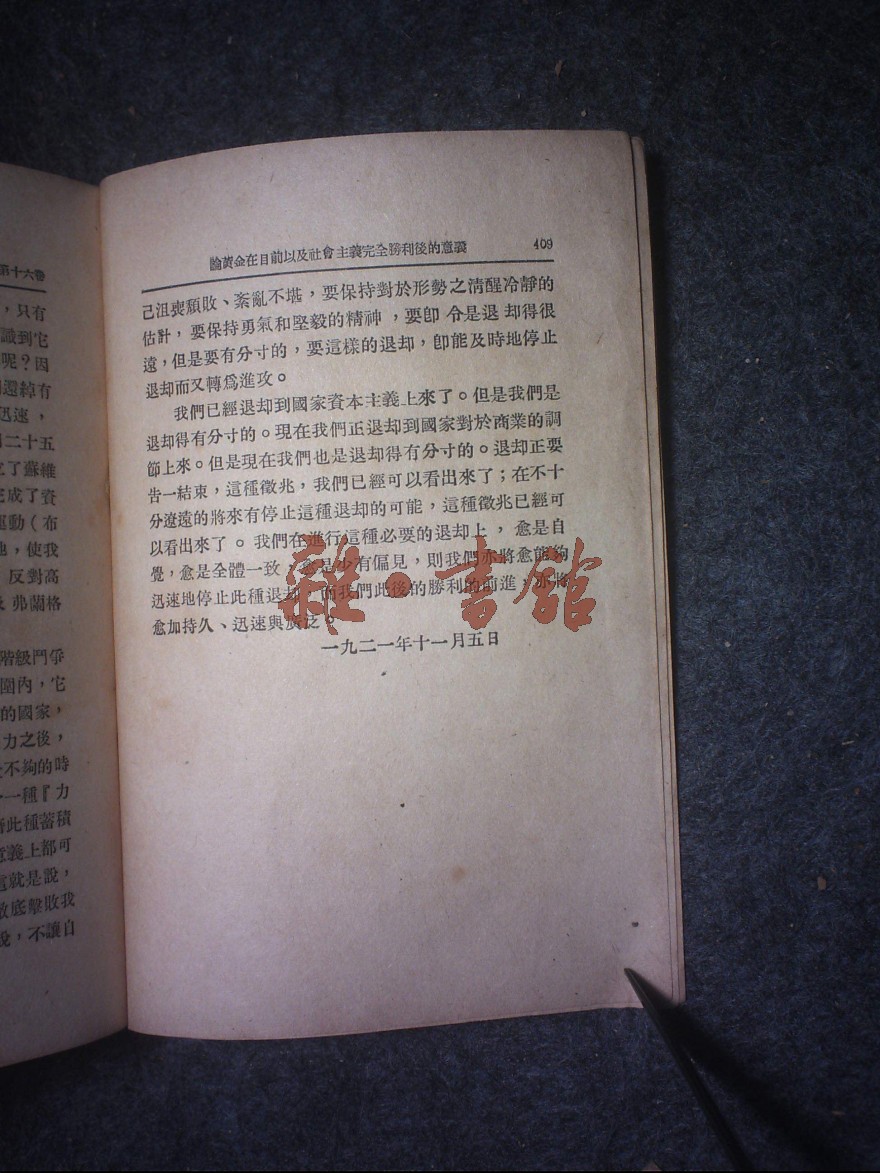 第十六卷
，只有
識到它
呢？因
還綽有
迅速，
二十五
立了蘇維
完成了資
運動（布
地，使我
反對高
及弗蘭格
階級鬥爭
圍內，它
的國家，
力之後，
不夠的時
一種『力
此種蓄積
意義上都可
這就是說，
底擊敗我
說，不讓自
論黃金在目前以及社會主義完全勝利後的意義 409
己沮喪頹敗、紊亂不堪，要保持對於形勢之清醒冷靜的
估計，要保持勇氣和堅毅的精神，要卽令是退却得很
遠，但是要有分寸的，要這樣的退却，卽能及時地停止
退却而又轉爲進攻。
我們已經退却到國家資本主義上來了。但是我們是
退却得有分寸的。現在我們正退却到國家對於商業的調
節上來。但是現在我們也是退却得有分寸的。退却正要
告一結束，這種徵兆，我們已經可以看出來了；在不十
分遼遠的將來有停止這種退却的可能，這種徵兆已經可
以看出來了。我們在進行這種必要的退却上，愈是自
覺，愈是全體一致，愈是少有偏見，則我們亦將愈能夠
迅速地停止此種退却，而我們此後的勝利的前進，亦將
愈加持久、迅速與廣泛。
一九二一年十一月五日
雜·書館